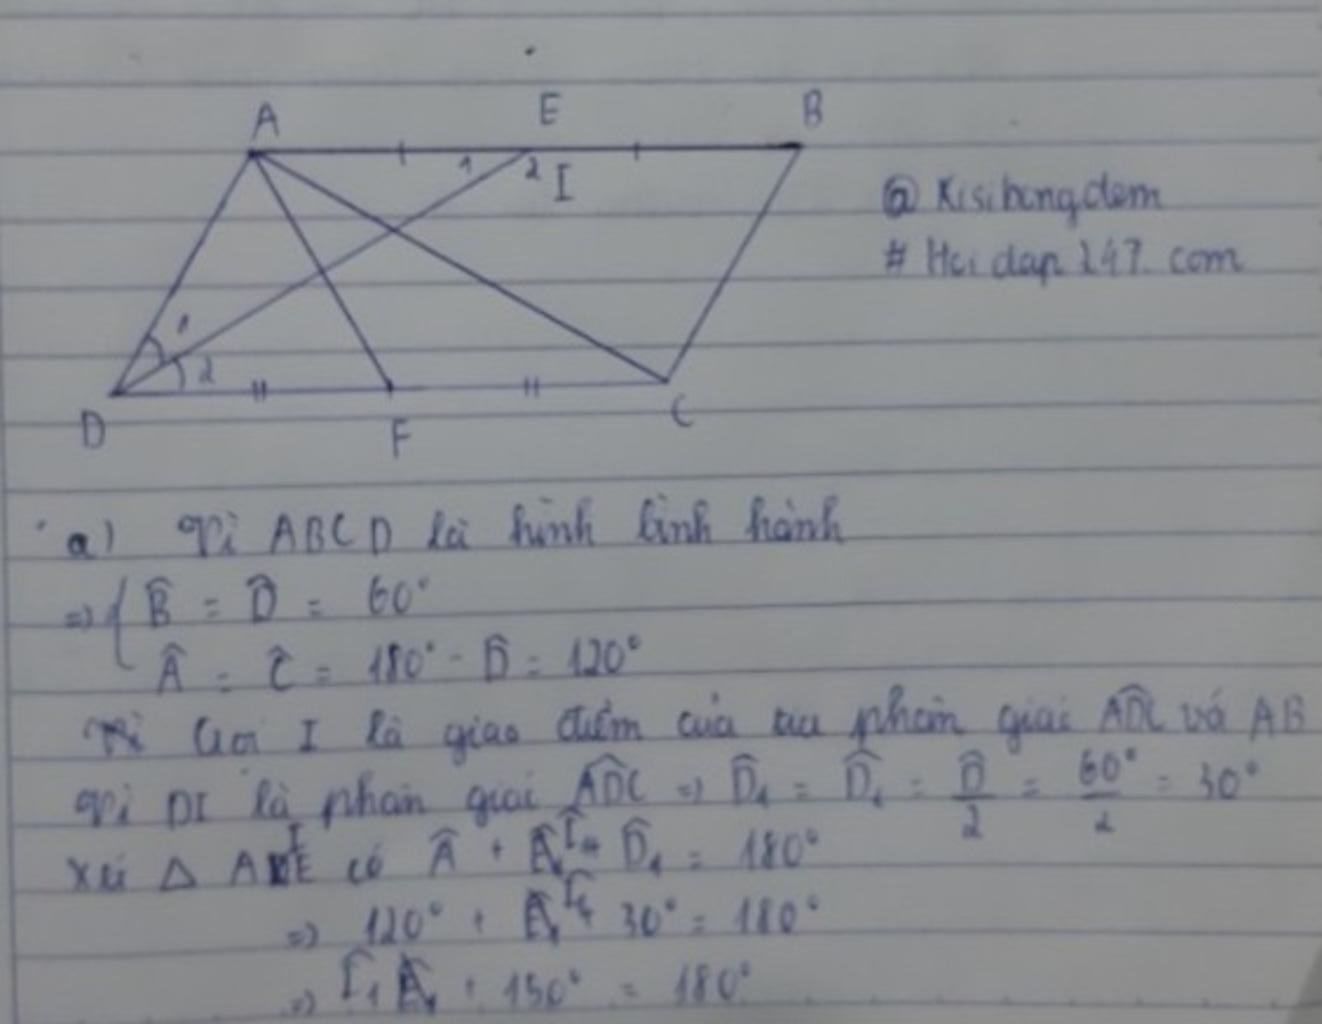 A E B
1 2 I
@ Kisibongdem
# Hoi dap 247. com
1
2
D F C
a) Vì ABCD là hình bình hành
=> { B̂ = D̂ = 60°
Â = Ĉ = 180° - D̂ = 120°
Gọi I là giao điểm của tia phân giác ADC và AB
Vì DI là phân giác ADC => D̂₁ = D̂₂ = D̂/2 = 60°/2 = 30°
Xét △ A có Â + Î₁ + D̂₁ = 180°
=> 120° + Î₁ + 30° = 180°
=> Î₁ + 150° = 180°